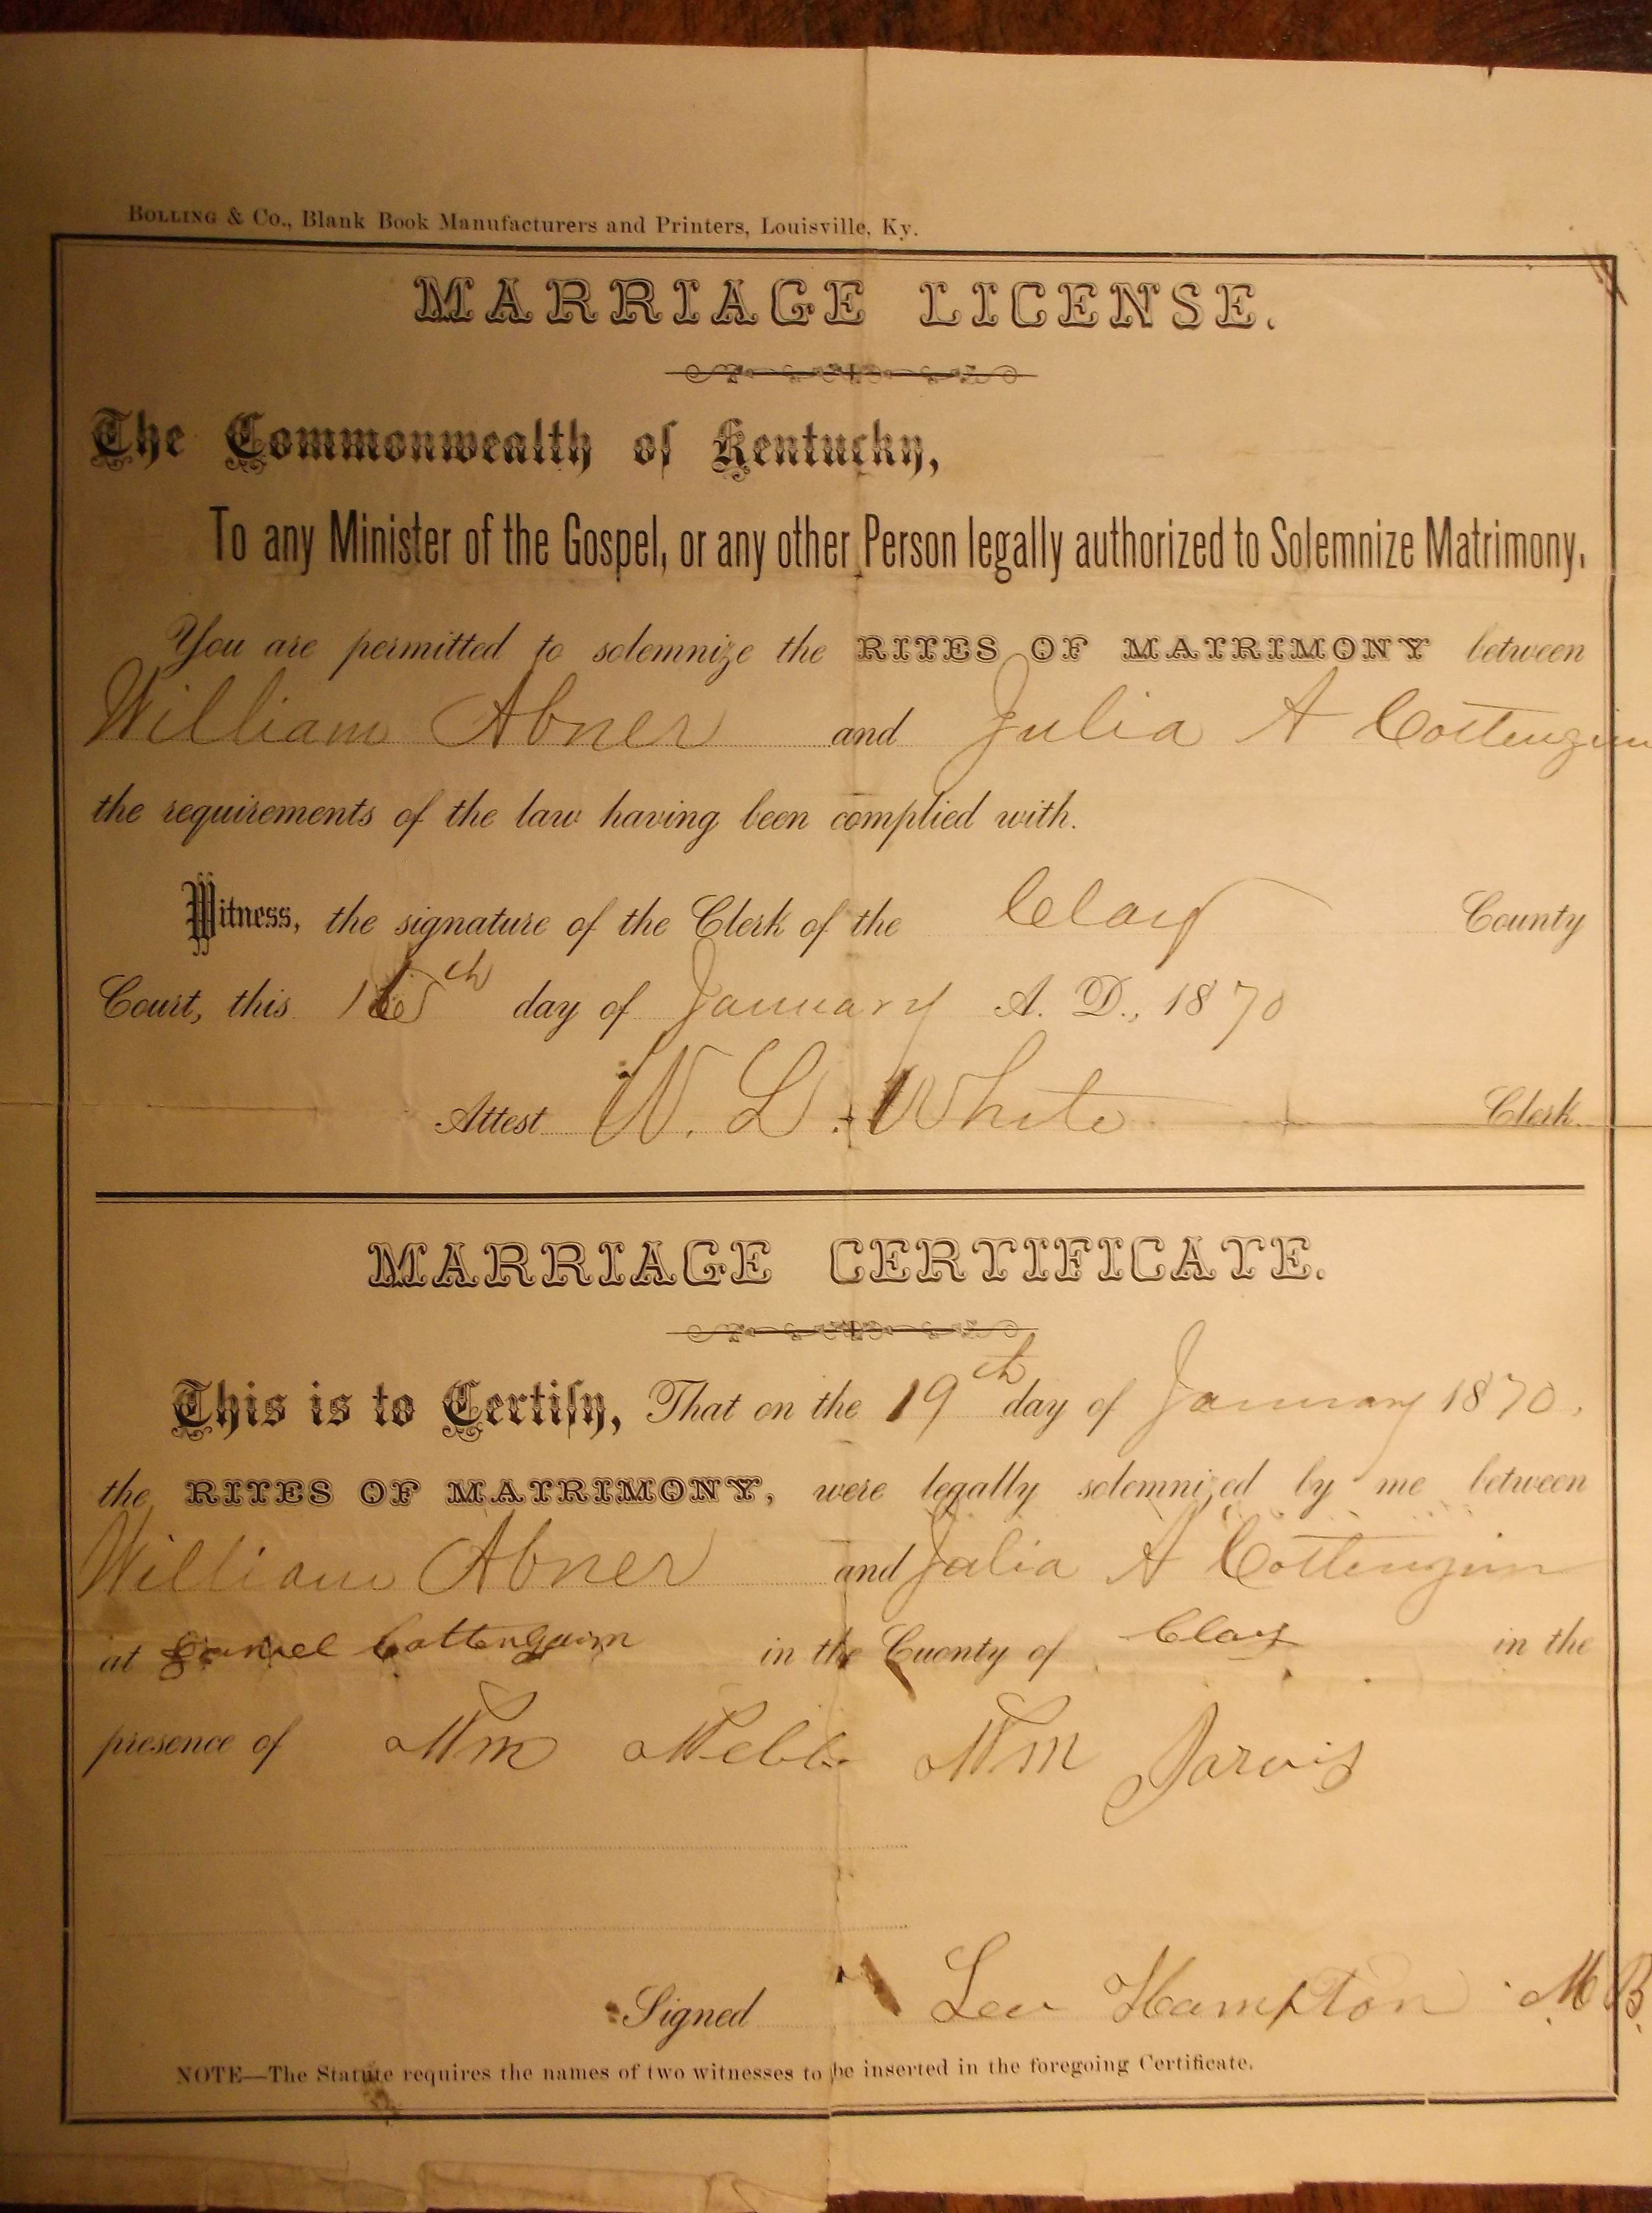 BOLLING & CO., Blank Book Manufacturers and Printers, Louisville, Ky.
MARRIAGE LICENSE.
The Commonwealth of Kentucky,
To any Minister of the Gospel, or any other Person legally authorized to Solemnize Matrimony.
You are permitted to solemnize the RITES OF MATRIMONY between
William Abner and Julia A Cottengim
the requirements of the law having been complied with.
Witness, the signature of the Clerk of the Clay County
Court, this day of January A. D., 1870
Attest W. L. White Clerk
MARRIAGE CERTIFICATE.
This is to Certify, That on the 19th day of January 1870.
the RITES OF MATRIMONY, were legally solemnized by me between
William Abner and Julia A Cottengim
at Cottengaim in the County of Clay in the
presence of Wm Webb Wm Jarvis
Signed Lew Hampton M B.
NOTE—The Statute requires the names of two witnesses to be inserted in the foregoing Certificate.